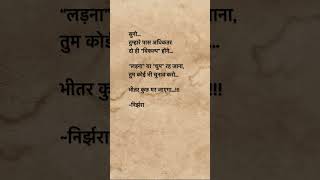 सुनो...
तुम्हारे पास अधिकतर
दो ही "विकल्प" होंगे...
"लड़ना" या "चुप" रह जाना,
तुम कोई भी चुनाव करो...
भीतर कुछ मर जाएगा...!!!
~निर्झरा
"लड़ना
तुम कोई
भीतर कुछ
~निर्झरा
रह जाना,
करो...